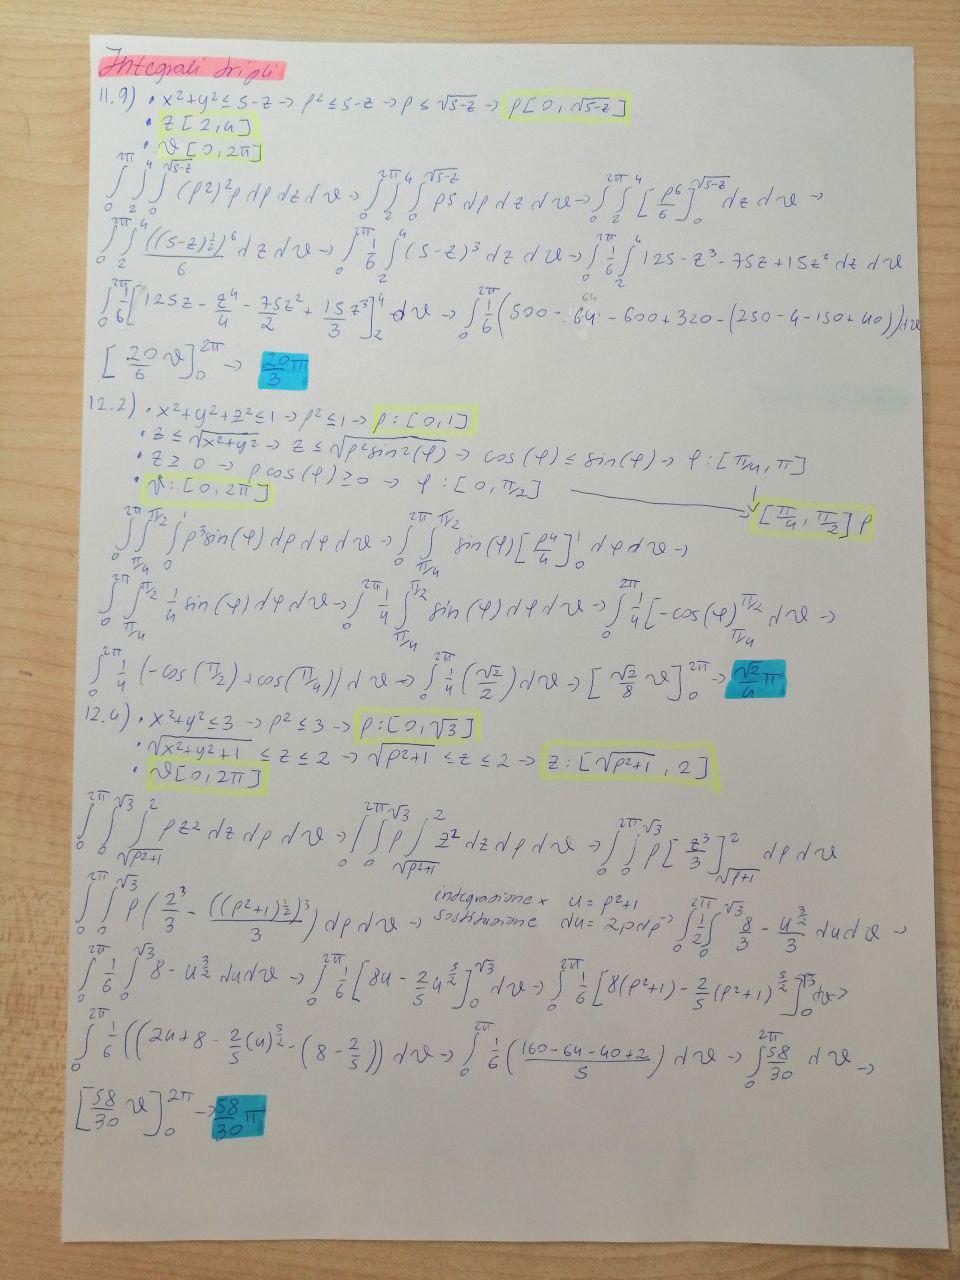 Integrali tripli
11.9) • x²+y² ≤ 5-z → ρ² ≤ 5-z → ρ ≤ √5-z → ρ[0, √5-z]
• z[2,4]
• ϑ[0,2π]
∫₀^2π ∫₂^4 ∫₀^√5-z (ρ2)²ρ dρ dz dϑ → ∫₀^2π ∫₂^4 ∫₀^√5-z ρ5 dρ dz dϑ → ∫₀^2π ∫₂^4 [ρ⁶/6]₀^√5-z dz dϑ →
∫₀^2π ∫₂^4 ((5-z)^½)⁶/6 dz dϑ → ∫₀^2π 1/6 ∫₂^4 (5-z)³ dz dϑ → ∫₀^2π 1/6 ∫₂^4 125 - z³ - 75z + 15z² dz dϑ
∫₀^2π 1/6 [125z - z⁴/4 - 75z²/2 + 15z³/3]₂^4 dϑ → ∫₀^2π 1/6 (500 - 64 - 600 + 320 - (250 - 4 - 150 + 40)) dϑ
[20/6 ϑ]₀^2π → 20/3 π
12.2) • x²+y²+z² ≤ 1 → ρ² ≤ 1 → ρ: [0,1]
• z ≤ √x²+y² → z ≤ √ρ²sin²(φ) → cos(φ) ≤ sin(φ) → φ: [π/4, π]
• z ≥ 0 → ρcos(φ) ≥ 0 → φ: [0, π/2]
• ϑ: [0,2π]
[π/4, π/2] φ
∫₀^2π ∫_π/4^π/2 ∫₀^1 ρ³sin(φ) dρ dφ dϑ → ∫₀^2π ∫_π/4^π/2 sin(φ) [ρ⁴/4]₀^1 dφ dϑ →
∫₀^2π ∫_π/4^π/2 1/4 sin(φ) dφ dϑ → ∫₀^2π 1/4 ∫_π/4^π/2 sin(φ) dφ dϑ → ∫₀^2π 1/4 [-cos(φ)_π/4^π/2 dϑ →
∫₀^2π 1/4 (-cos(π/2) + cos(π/4)) dϑ → ∫₀^2π 1/4 (√2/2) dϑ → [√2/8 ϑ]₀^2π → √2/4 π
12.4) • x²+y² ≤ 3 → ρ² ≤ 3 → ρ: [0, √3]
• √x²+y²+1 ≤ z ≤ 2 → √ρ²+1 ≤ z ≤ 2 → z: [√ρ²+1, 2]
• ϑ[0,2π]
∫₀^2π ∫₀^√3 ∫_√ρ²+1^2 ρz² dz dρ dϑ → ∫₀^2π ∫₀^√3 ρ ∫_√ρ²+1^2 z² dz dρ dϑ → ∫₀^2π ∫₀^√3 ρ [z³/3]_√ρ+1^2 dρ dϑ
∫₀^2π ∫₀^√3 ρ (2³/3 - ((ρ²+1)^½)³/3) dρ dϑ → integrazione x sostituzione u = ρ²+1 du = 2ρdρ → ∫₀^2π 1/2 ∫₀^√3 8/3 - u^3/2/3 du dϑ →
∫₀^2π 1/6 ∫₀^√3 8 - u^3/2 du dϑ → ∫₀^2π 1/6 [8u - 2/5 u^5/2]₀^√3 dϑ → ∫₀^2π 1/6 [8(ρ²+1) - 2/5 (ρ²+1)^5/2]₀^√3 dϑ →
∫₀^2π 1/6 ((24+8 - 2/5 (4)^5/2 - (8 - 2/5)) dϑ → ∫₀^2π 1/6 (160-64-40+2/5) dϑ → ∫₀^2π 58/30 dϑ →
[58/30 ϑ]₀^2π → 58/30 π